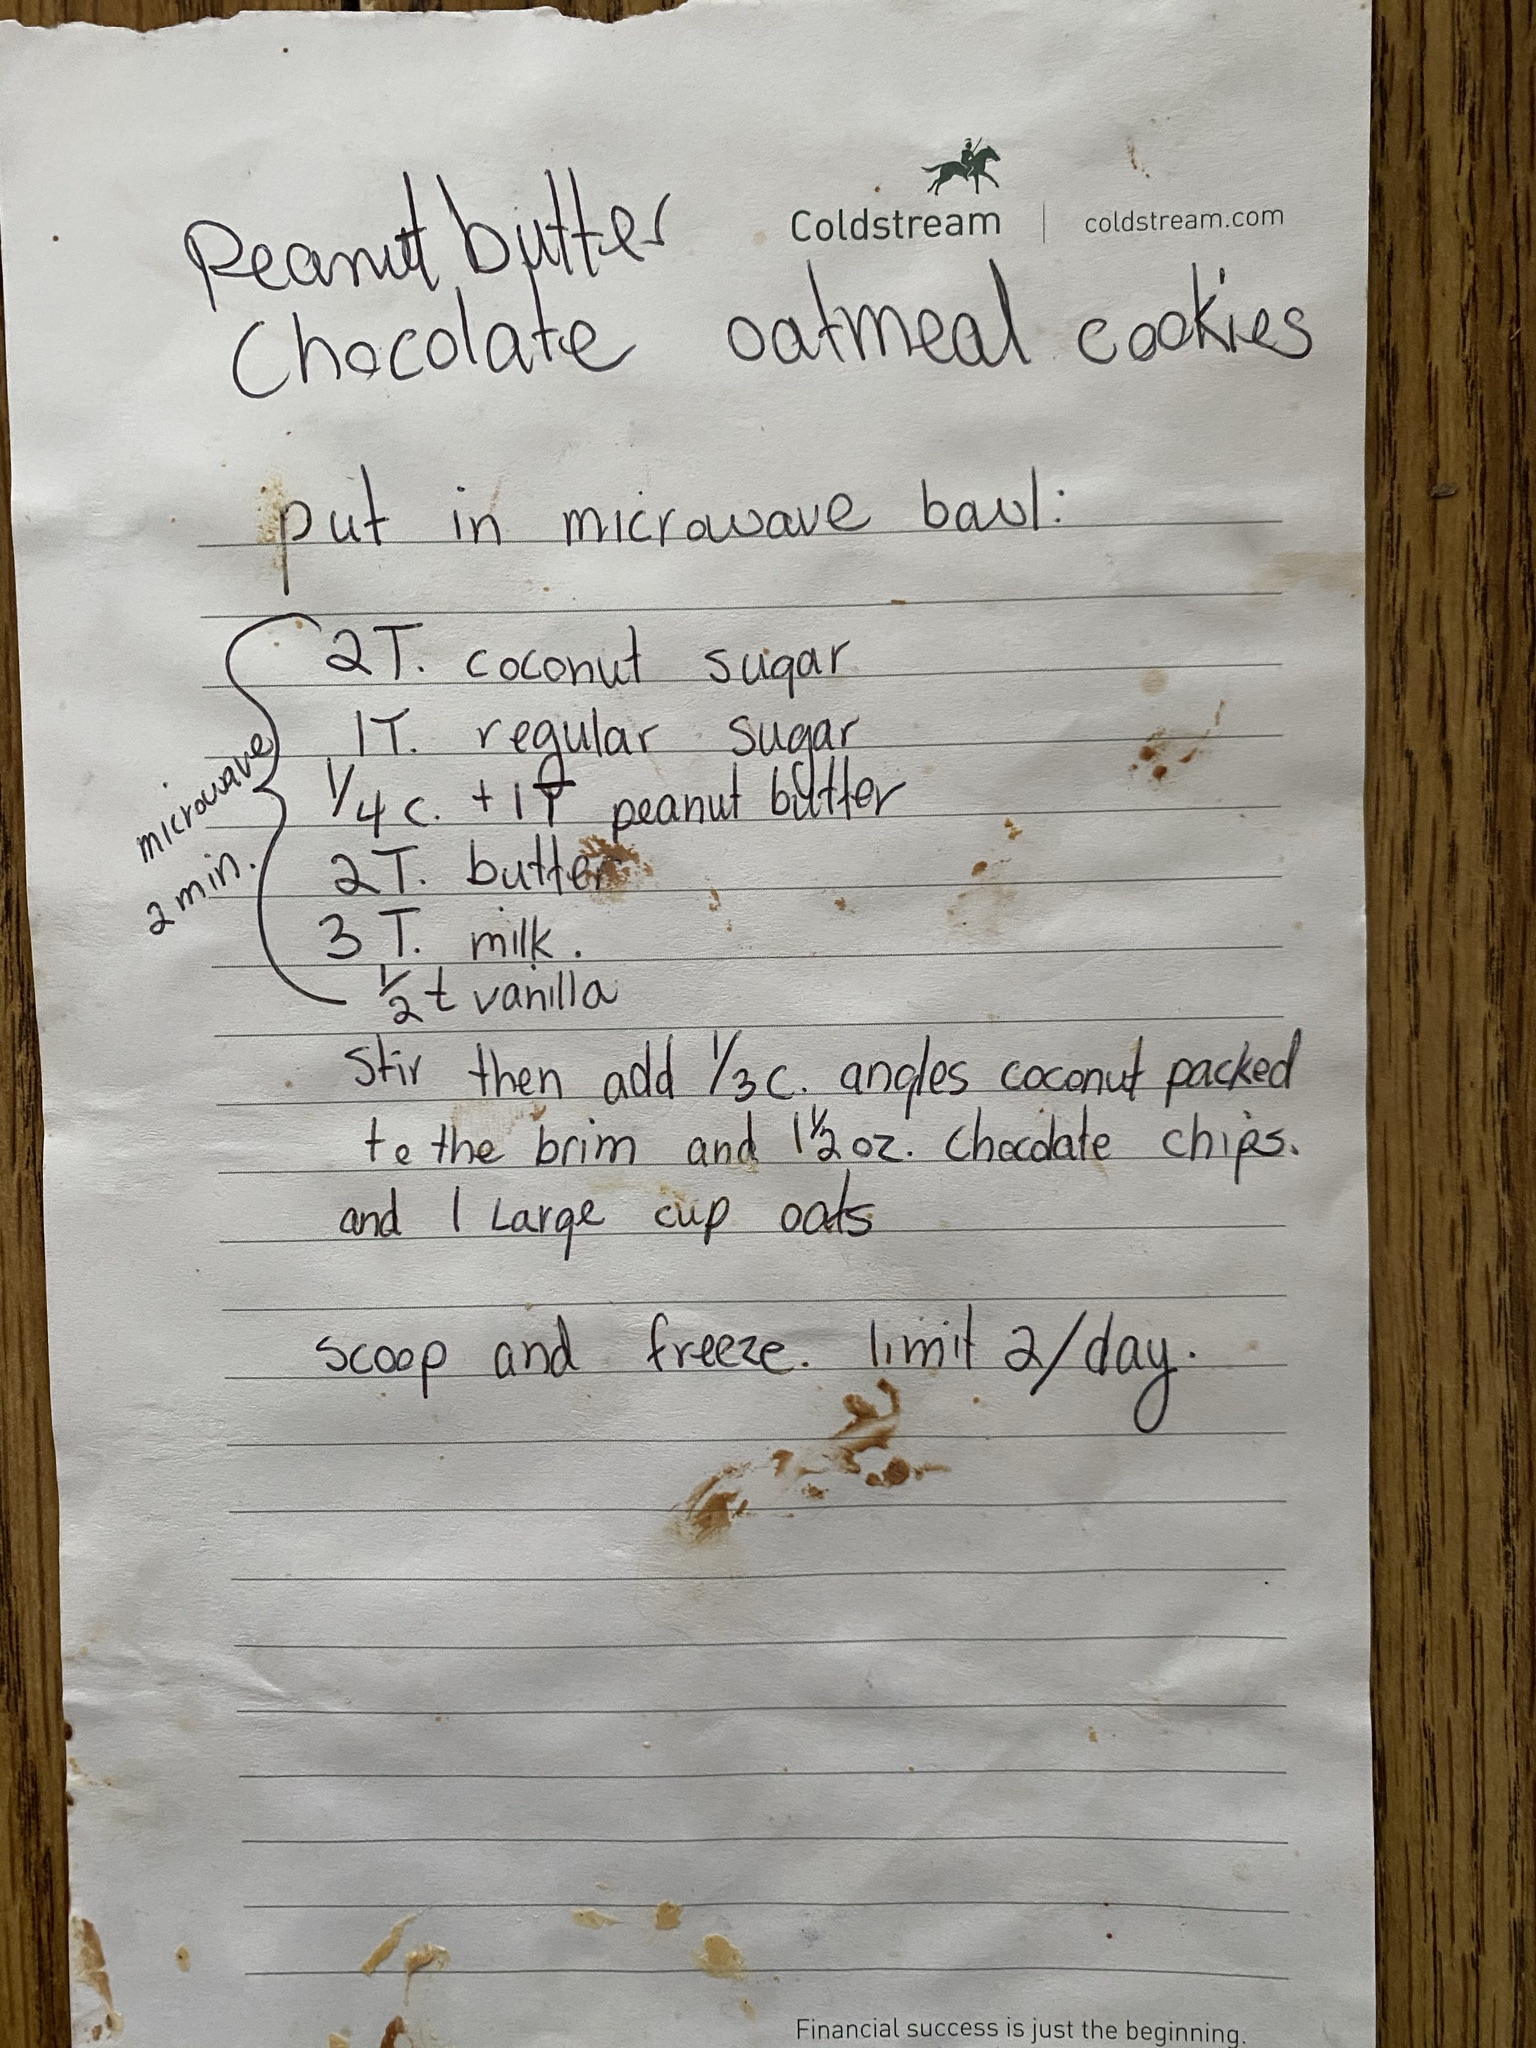 Coldstream | coldstream.com
Peanut butter
Chocolate oatmeal cookies
put in microwave bowl:
2T. coconut sugar
1T. regular sugar
1/4 c. + 1T peanut butter
2T. butter
3 T. milk.
1/2 t vanilla
microwave
2 min.
Stir then add 1/3 c. angles coconut packed
to the brim and 1 1/2 oz. Chocolate chips.
and 1 Large cup oats
scoop and freeze. limit 2/day.
Financial success is just the beginning.